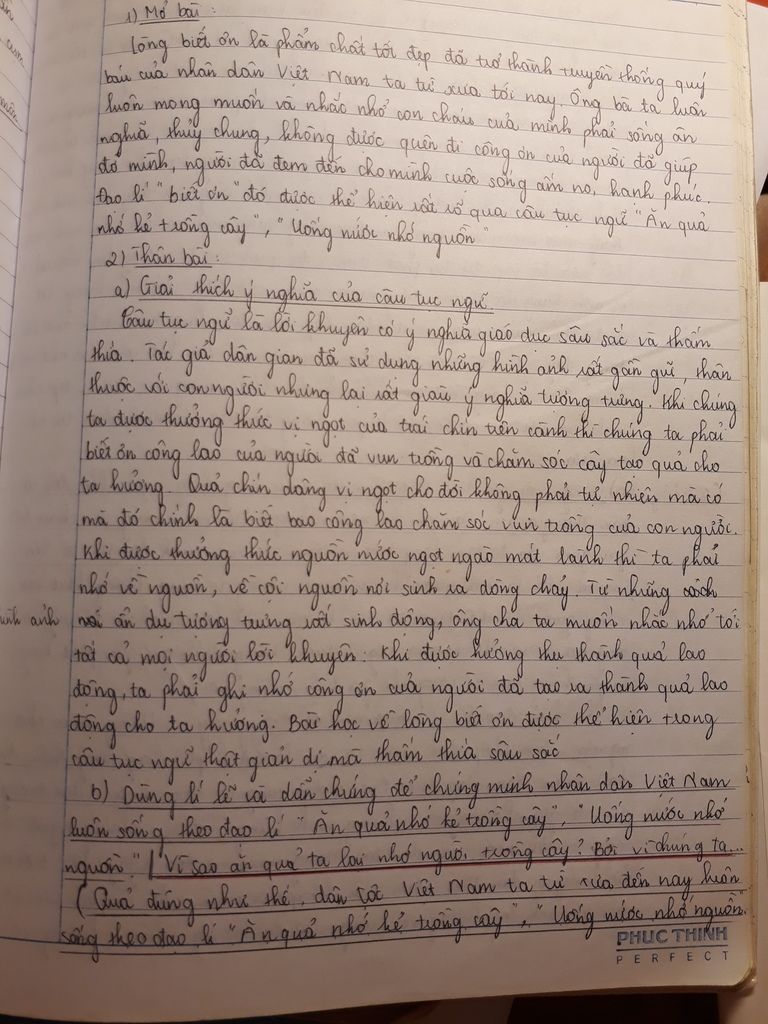 1) Mở bài:
Lòng biết ơn là phẩm chất tốt đẹp đã trở thành truyền thống quý
báu của nhân dân Việt Nam ta từ xưa tới nay. Ông bà ta luôn
luôn mong muốn và nhắc nhở con cháu của mình phải sống ân
nghĩa, thủy chung, không được quên đi công ơn của người đã giúp
đỡ mình, người đã đem đến cho mình cuộc sống ấm no, hạnh phúc.
Đạo lí "biết ơn" đó được thể hiện rất rõ qua câu tục ngữ "Ăn quả
nhớ kẻ trồng cây", "Uống nước nhớ nguồn"
2) Thân bài:
a) Giải thích ý nghĩa của câu tục ngữ.
Câu tục ngữ là lời khuyên có ý nghĩa giáo dục sâu sắc và thấm
thía. Tác giả dân gian đã sử dụng những hình ảnh rất gần gũi, thân
thuộc với con người nhưng lại rất giàu ý nghĩa tượng trưng. Khi chúng
ta được thưởng thức vị ngọt của trái chín trên cành thì chúng ta phải
biết ơn công lao của người đã vun trồng và chăm sóc cây tạo quả cho
ta hưởng. Quả chín dâng vị ngọt cho đời không phải tự nhiên mà có
mà đó chính là biết bao công lao chăm sóc vun trồng của con người.
Khi được thưởng thức nguồn nước ngọt ngào mát lành thì ta phải
nhớ về nguồn, về cội nguồn nơi sinh ra dòng chảy. Từ những cách
ình ảnh nói ẩn dụ tượng trưng rất sinh động, ông cha ta muốn nhắc nhở tới
tất cả mọi người lời khuyên: Khi được hưởng thụ thành quả lao
động, ta phải ghi nhớ công ơn của người đã tạo ra thành quả lao
động cho ta hưởng. Bài học về lòng biết ơn được thể hiện trong
câu tục ngữ thật giản dị mà thấm thía sâu sắc
b) Dùng lí lẽ và dẫn chứng để chứng minh nhân dân Việt Nam
luôn sống theo đạo lí "Ăn quả nhớ kẻ trồng cây", "Uống nước nhớ
nguồn." / Vì sao ăn quả ta lại nhớ người trồng cây? Bởi vì chúng ta...
(Quả đúng như thế, dân tộc Việt Nam ta từ xưa đến nay luôn
sống theo đạo lí "Ăn quả nhớ kẻ trồng cây", "Uống nước nhớ nguồn".
PHUC THINH
PERFECT